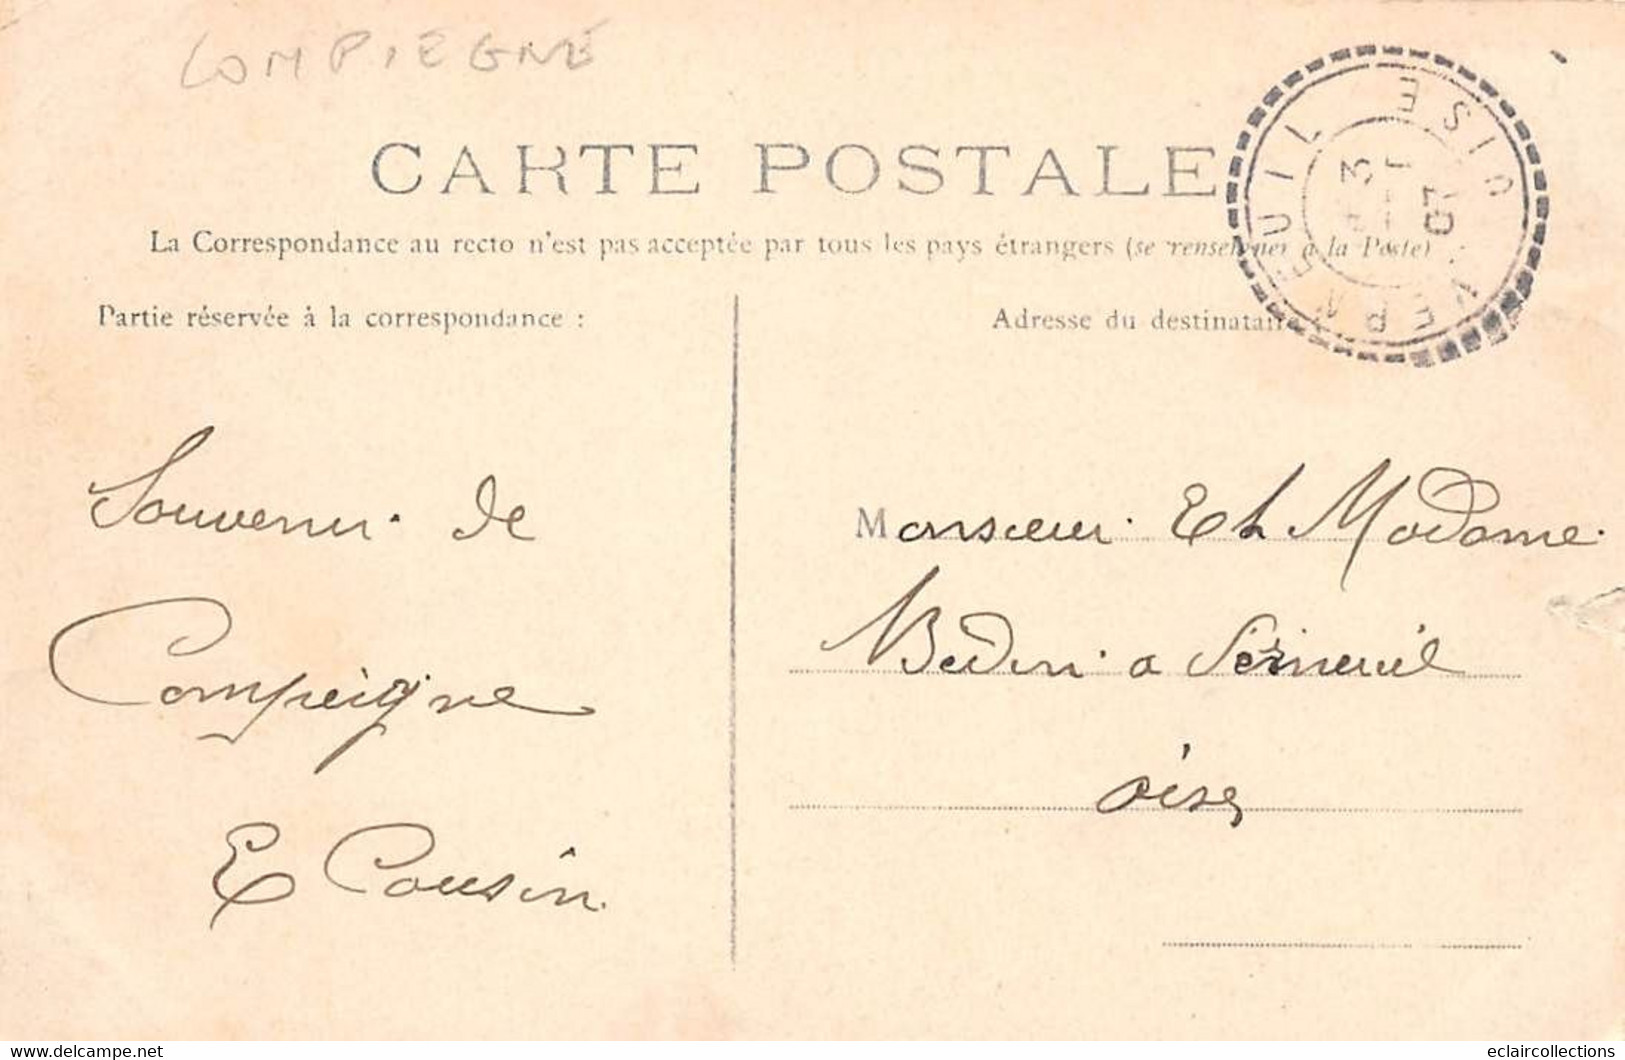 COMPIEGNE
CARTE POSTALE
La Correspondance au recto n'est pas acceptée par tous les pays étrangers (se renseigner à la Poste)
Partie réservée à la correspondance :
Adresse du destinataire
VERNEUIL OISE
3
07
Souvenir de
Compeigne
E Cousin
Monsieur Et Madame
à
oise
delcampe.net
eclaircollections